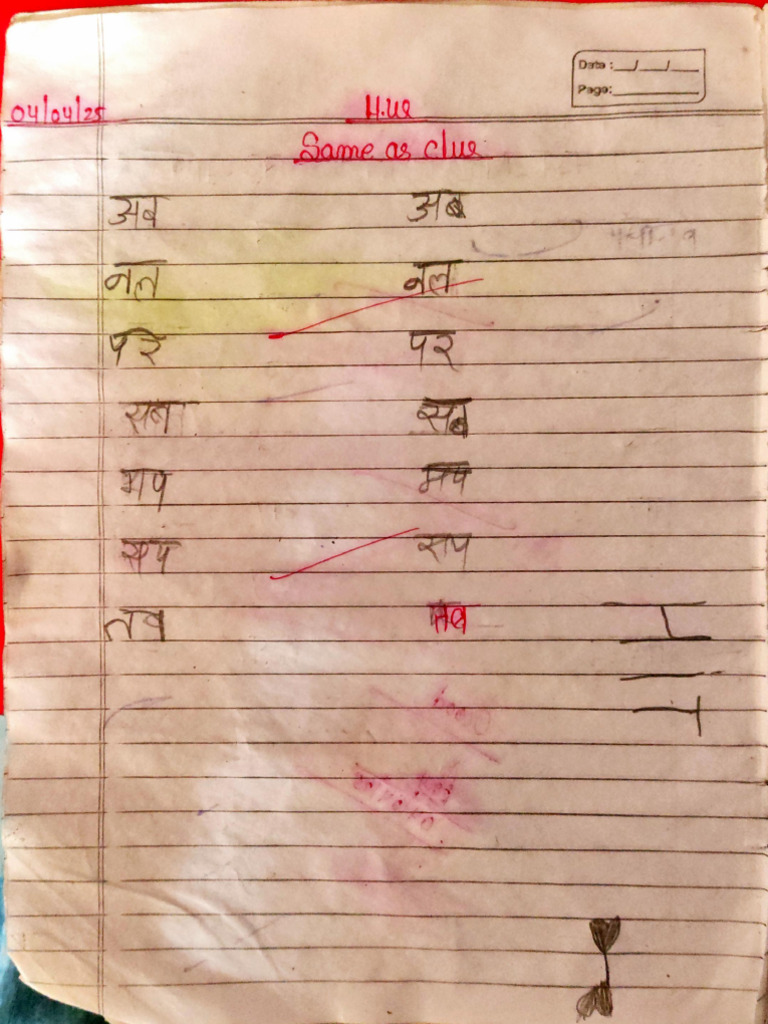 Date: __/__/__
Page:
04/04/25 H.W
Same as c/w
अब अब
नल नल
पर पर
सब सब
मप मप
सप सप
तब तब